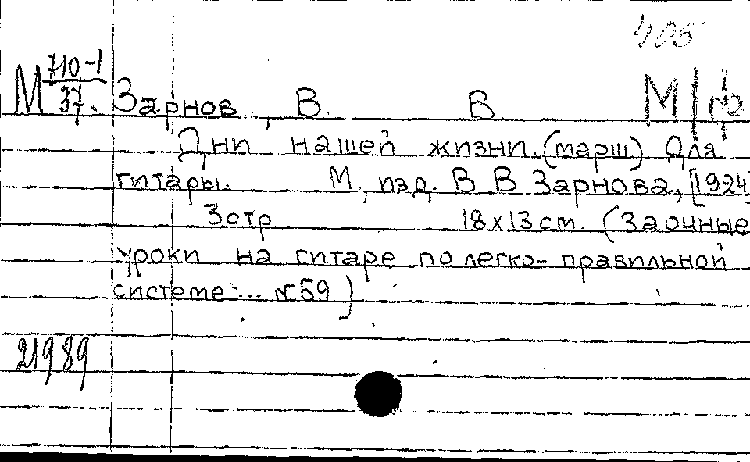 405
М 710-1/37. Зарнов, В. В. М/гр
Дни нашей жизни. (марш) Для
гитары. М, изд. В В Зарнова, [1924]
3 стр 18 х 13 см. (Заочные
уроки на гитаре по легко-правильной
системе... № 59)
21989